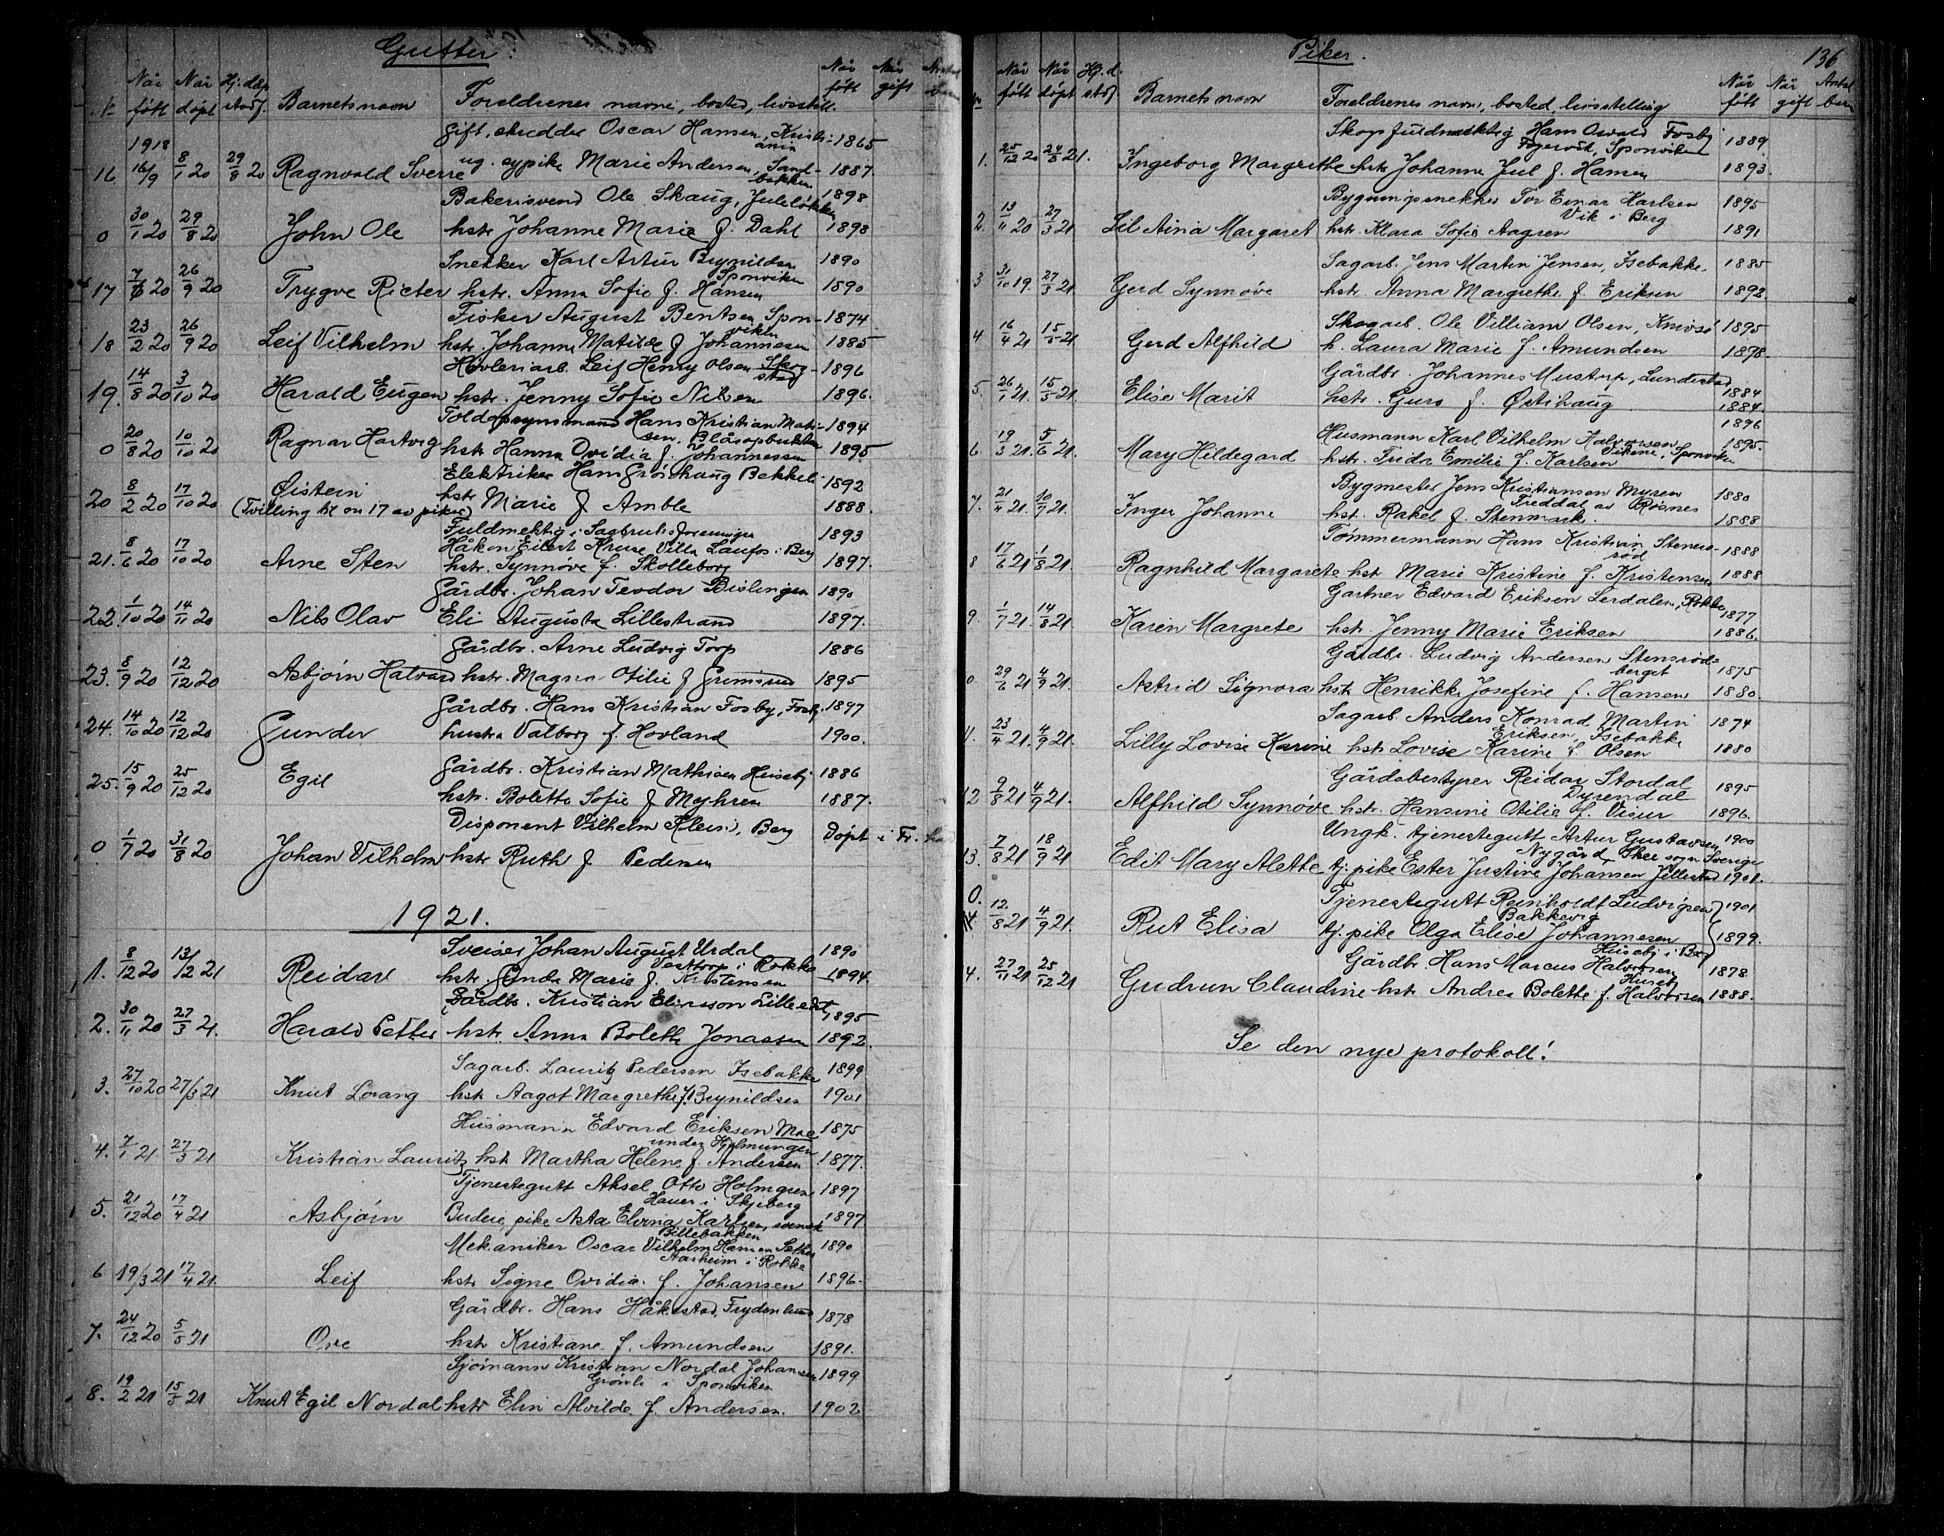 Gutter.
№ Når født Når døpt Hj. døp stadf. Barnets navn Foreldrenes navn, bosted, livsstill. Når født Når gift
1918
Gift, skredder Oscar Hansen, Kristiania 1865
16 16/9 8/1 20 29/8 20 Ragnvald Sverre ug. sypike Marie Andersen, Sandbakken 1887.
Bakerisvend Ole Skaug, Juleløkken 1898
0 30/1 20 29/8 20 John Ole hstr. Johanne Marie f. Dahl 1898
Snekker Karl Artur Brynildsen Sponviken 1890
17 7/6 20 26/9 20 Trygve Rieter hstr. Anna Sofie f. Hansen 1890
Fisker August Bentsen Sponviken 1874
18 23/2 20 26/9 20 Leif Vilhelm hstr. Johanne Matilde f. Johannesen 1885
Høvleriarb. Leif Henry Olsen 1896
19. 14/8 20 3/10 20 Harald Eugen hstr. Jenny Sofie Nilsen 1896.
Toldopsynsmand Hans Kristian Matsen, Blåsopbukten 1894
0 20/8 20 10/10 20 Ragnar Hartvig hstr Hanna Ovidia f. Johannessen 1895
Elektriker Hans Grønhaug Bekkeli 1892
20 8/2 20 17/10 20 Øistein (Tvilling til no 17 av piker) hstr Marie f Amble 1888.
Fuldmektig i Sagbruksforeningen 1893
Håkon Eilert Kruse Villa Laufos i Berg
21. 8/6 20 17/10 20 Arne Sten hstr. Synnøve f. Skolleborg 1897.
Gårdbr. Johan Teodor Bislingen 1890
22. 1/10 20 14/11 20 Nils Olav Eli Augusta Lillestrand 1897.
Gårdbr. Arne Ludvig Torp 1886
23. 8/9 20 12/12 20 Asbjørn Halvard hstr. Magna Otilie f Grimsrud 1895
Gårdbr. Hans Kristian Fosby, Fosby 1897
24. 14/10 20 12/12 20 Gunder hustru Valborg f. Hovland 1900.
Gårdbr. Kristian Mathisen Huseby 1886
25. 15/9 20 25/12 20 Egil hstr. Bolette Sofie f Myhren 1887.
Disponent Vilhelm Klein, Berg Døpt i Fr.
0 1/7 20 31/8 20 Johan Vilhelm hstr Ruth f. Pedersen
1921.
Sveiser Johan August Urdal Vesttorp i Rokke 1890
1. 8/12 20 13/12 21 Reidar hstr. Gunda Marie f. Kristensen 1894.
Gårdbr. Kristian Elirsson Lille 1895
2. 30/11 20 27/3 21. Harald Petter hstr. Anna Bolette Jonassen 1892.
Sagarb. Lauritz Pedersen Isebakke 1899
3. 27/10 20 27/3 21 Knut Lorang hstr. Aagot Margrethe f. Brynildsen 1901
Husmann Edvard Eriksen Moe under Hjelmungen 1875
4. 7/1 21 27/3 21 Kristian Lauritz hst. Martha Helene f. Andersen 1877.
Tjenestegutt Aksel Otto Holmgren Hauer i Skjeberg 1897
5. 21/12 20 17/4 21 Asbjørn Budeie, pike Asta Elvina Karlsen, svensk Billebakken 1897
Mekaniker Oscar Vilhelm Hansen Sæther Aasheim i Rokke 1890
6 19/3 21 17/4 21. Leif hstr. Signe Ovidia f. Johansen 1896.
Gårdbr. Hans Håkestad, Frydenlund 1878
7. 24/12 20 5/5 21 Ove hstr Kristiane f. Amundsen 1891.
Sjømann Kristian Nordal Johansen Grønli i Sponviken 1899
8. 19/2 21 15/5 21 Knut Egil Nordal hstr Elin Alvilde f Andersen. 1902
Piker.
136
Når født Når døpt Hj.d. stdf Barnets navn Foreldrenes navn, bosted livsstilling Når født Når gift Antal barn
Skogsfuldmektig Hans Osvald Fosby Fagervik, Sponviken 1889
1. 25/12 20 24/3 21. Ingeborg Margrethe hstr Johanne Jul f. Hansen 1893.
Bygningssnekker Tor Einar Karlsen Vik i Berg 1895
2. 13/11 20 27/3 21 Lil Aina Margaret hstr. Klara Sofie Aagren 1891
Sagarb. Jens Martin Jensen, Isebakke. 1885
3 31/10 19. 27/3 21 Gerd Synnøve hstr. Anna Margrethe f. Eriksen 1892
Skogarb. Ole Villiam Olsen, Knivsø 1895
4 16/4 21 15/5 21 Gerd Alfhild h. Laura Marie f. Amundsen 1898.
Gårdbr. Johannes Mustorp, Lundestad 1884
5. 26/1 21. 15/5 21. Elise Marit hstr. Guro f. Østihaug 1884.
Husmann Karl Vilhelm Halvorsen Vikene, Sponviken 1896
6. 19/3 21. 5/6 21. Mary Hildegard hstr. Frida Emilie f. Karlsen 1895.
Bygmester Jens Kristiansen Myren Freddal av Røsnes 1880
7. 21/4 21. 10/7 21. Inger Johanne hst. Rakel f. Stenmark. 1888
Tømmermann Hans Kristian Stensrød 1888
8 17/6 21 1/8 21. Ragnhild Margarete hst Marie Kristine f. Kristensen 1888
Gartner Edvard Eriksen Lerdalen, Rokke 1877
9. 1/7 21. 14/8 21. Karen Margrete hstr. Jenny Marie Eriksen 1886
Gårdbr. Ludvig Andersen Stensrødberget 1875
0. 29/6 21 4/9 21. Astrid Signora hstr Henrikke Josefine f. Hansen 1880.
Sagarb. Anders Konrad Martin Eriksen, Isebakke 1874
11. 23/4 21. 4/9 21. Lilly Lovise Karine hstr Lovise Karine f. Olsen 1880
Gårdsbestyrer Reidar Stordal Dyrendal 1895
12 9/8 21 4/9 21. Alfhild Synnøve hstr. Hansine Otilie f. Visur 1896.
Ungk. tjenestegutt Artur Gustavsen Nygård, Skee sogn Sverige 1900
13. 7/8 21 18/9 21 Edit Mary Alette tj. pike Ester Justine Johansen Jellestad 1901.
0. Tjenestegutt Reinholdt Ludvigsen Bakkevig 1901
12/8 21 4/9 21. Rut Elisa tj. pike Olga Elise Johannesen 1899.
Gårdbr. Hans Marcus Halvorsen Huseby i Berg 1878
4. 27/11 21 25/12 21 Gudrun Claudine hstr. Andrea Bolette f. Halvorsen 1888.
Se den nye protokoll!